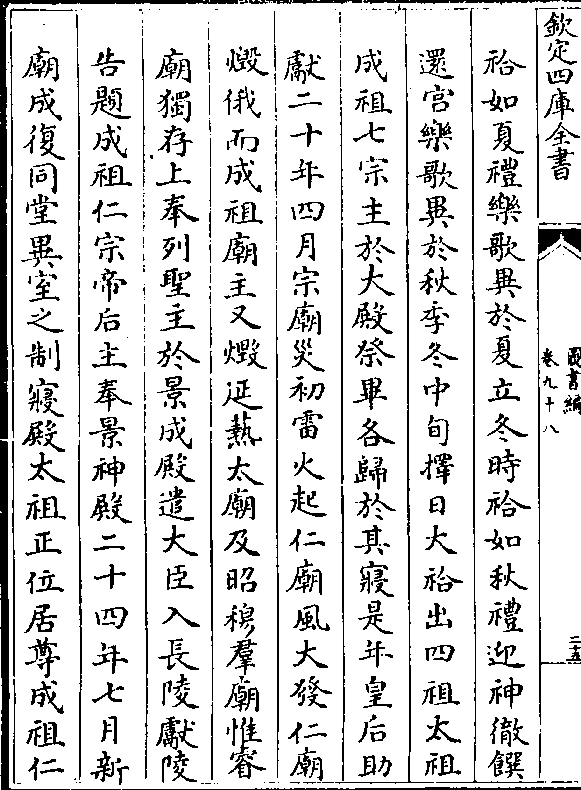 欽定四庫全書
圖書編
卷九十八
二五
祫如夏禮樂歌異於夏立冬時祫如秋禮迎神徹饌
還宮樂歌異於秋季冬中旬擇日大祫出四祖太祖
成祖七宗主於大殿祭畢各歸於其寢是年皇后助
獻二十年四月宗廟災初雷火起仁廟風大發仁廟
燬俄而成祖廟主又燬延爇太廟及昭穆羣廟惟睿
廟獨存上奉列聖主於景成殿遣大臣入長陵獻陵
告題成祖仁宗帝后主奉景神殿二十四年七月新
廟成復同堂異室之制寢殿太祖正位居尊成祖仁